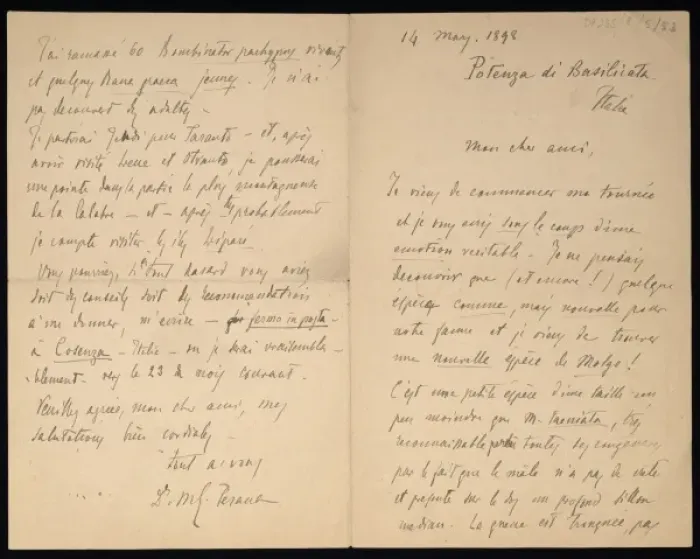 14 May. 1898
Potenza di Basilicata
Italie
Mon cher ami,
Je viens de commencer ma tournée
et je vous ecris sous le coup d'une
emotion veritable. Je ne pensais
decouvrir que (et encore!) quelque
espèce comme, mais nouvelle pour
notre faune et je viens de trouver
une nouvelle espèce de Molge!
C'est une petite espèce d'une taille un
peu moindre que M. taeniata, très
reconnaissable toutes ses congeneres
par le fait que le mâle n'a pas de crête
et presente sur le dos un profond sillon
median. La queue est tronquée, pas
J'ai ramassé 60 Bombinator pachypus vivants
et quelques Rana graeca jeunes. Je n'ai
pas decouvert des adultes.
Je partirai pour Tarante - et, après
avoir visité Lecce et Otrante, je pousserai
une pointe dans la partie la plus montagneuse
de la Calabre - et - après très probablement
je compte visiter les îles Lipari.
Vous pourriez, si tout hasard vous aviez
soit des conseils soit des recommendations
à me donner, m'ecrire - fermo in posta
à Cosenza - Italie - ou je serai vraisembla-
blement vers le 23 du mois courant.
Veuillez agreer, mon cher ami, mes
salutations bien cordiales.
Tout a vous
Dr. M.G. Peracca